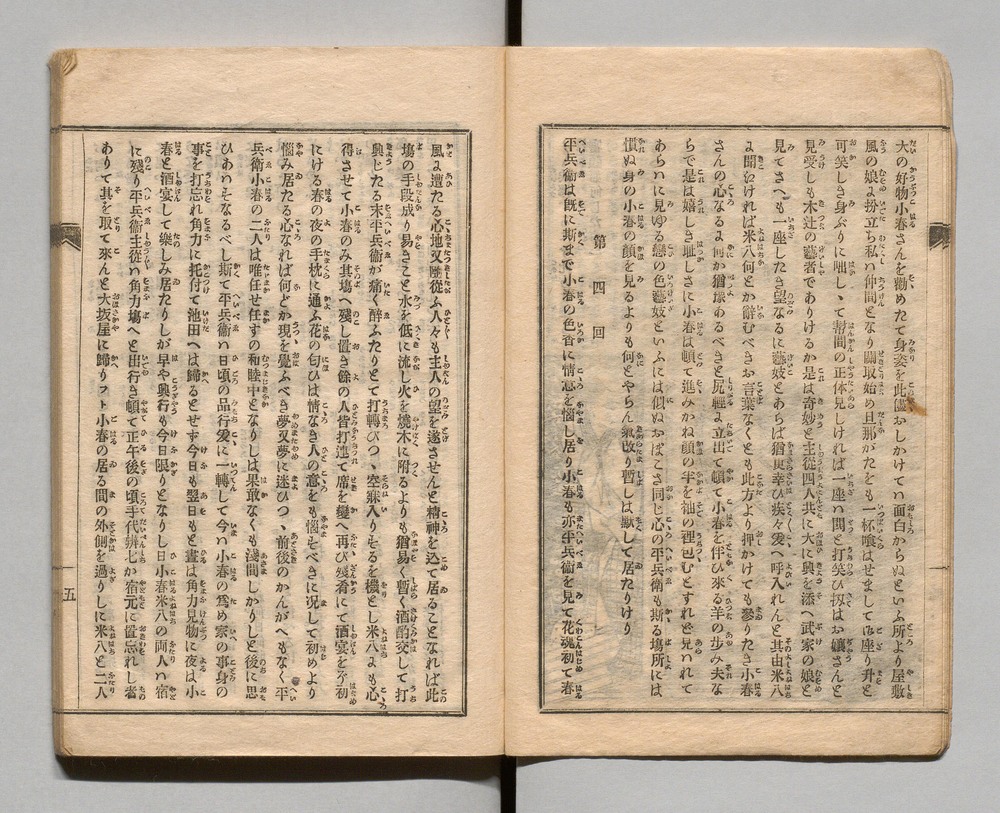 大の好物小春さんを勸めたて身姿を此儘おしかけてハ面白からぬといふ所より屋敷
風の娘よ扮立ち私ハ仲間となり關取始め旦那がたをも一杯喰はせましてに座り升と
可笑しき身ぶりに咄しゝて幇間の正体見しければ一座ハ閧と打笑ひ扨はお孃さんと
見受しも木辻の藝者でありけるか是は奇妙と主從四人共に大に興を添へ武家の娘と
見てさへも一座したき望なるに藝妓とあらば猶更幸ひ疾々爰へ呼入れんと其由米八
よ聞ければ米八何とか辭むべきお言葉なくとも此方より押かけても參りたき小春
さんの心なるよ何か猶豫あるべきと尻輕よ立出て頓て小春を伴ひ來る羊の歩み夫な
らで是は嬉しさ耻しさに小春は頓て進みかね顔の半を袖の裡包むとすれど見ハれて
あらハに見ゆる戀の色藝妓といふには似ぬおぼこさ同じ心の平兵衛も斯る塲所には
慣ぬ身の小春の顔を見るよりも何とやらん氣改り暫しは默して居たりけり
第四回
平兵衛は既に斯まで小春の色香に情意を惱し居り小春も亦平兵衛を見て花魂初て春
風よ遭たる心地又隨從ふ人々も主人の望を遂させんと精神を込て居ることなれば此
塲の手段成り易きこと水を低に流し火を燒木に附るよりも猶易く暫く酒酌交して打
興したる末平兵衛が痛く醉ふたりとて打轉びつゝ空寐入りそるを機とし米八よも心
得させて小春のみ其塲へ殘し置き餘の人皆打連て席を變へ再び殘肴にて酒宴を初
にける春の夜の手枕に通ふ花の匂ひは情なき人の意をも惱そべきに况して初めより
惱み居たる心なれば何どか現を覺ふべき夢又夢に迷ひつゝ前後のかんがへもなく平
兵衛小春の二人は唯任せ任すの和睦中となりしは果敢なくも淺間しかりしと後に思
ひあハそなるべし斯て平兵衛ハ日頃の品行爰に一轉して今ハ小春の爲め家の事身の
事を打忘れ角力に托付て池田へは歸るとせず今日も翌日もと晝は角力見物に夜は小
春と酒宴して樂しみ居たりしが早や興行も今日限りとなりし日小春米八の両人ハ宿
に殘り平兵衛主從ハ角力塲へと出行き頓て正午後の頃手代辨七か宿元に置忘れし者
ありて其を取て來んと大坂屋に歸りフト小春の居る間の外側を過りしに米八と二人
五